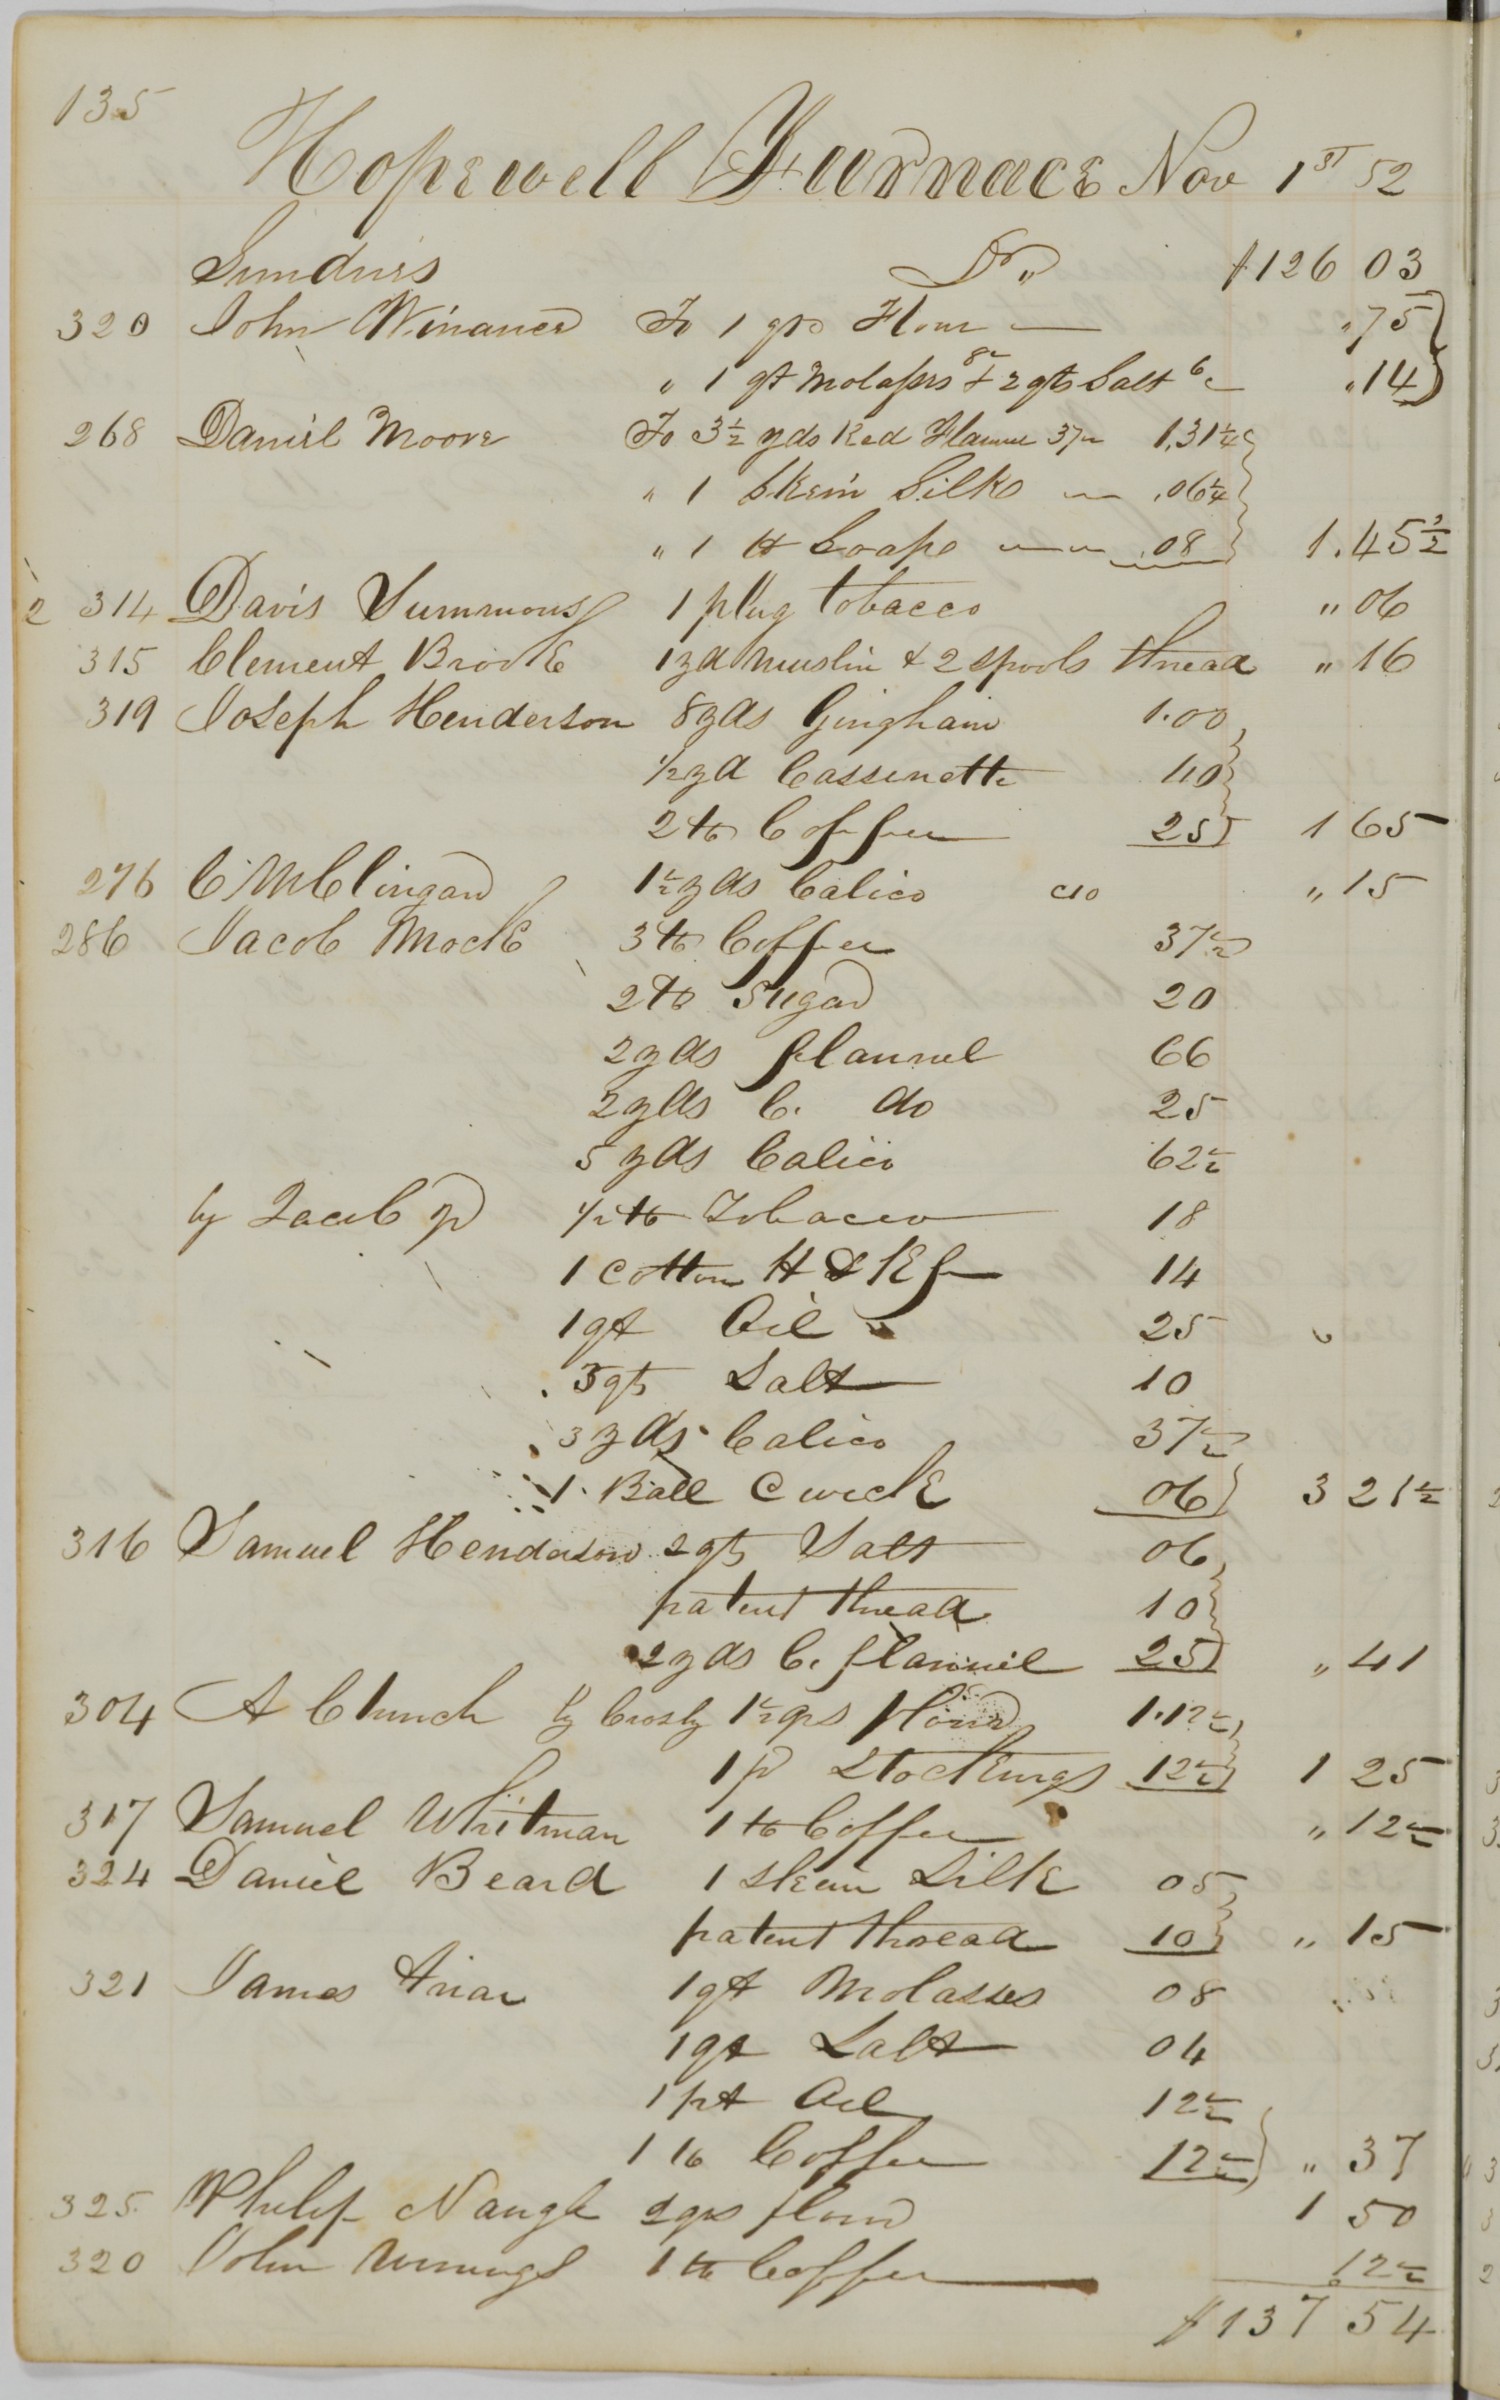 135
Hopewell Furnace Nov 1st 52
Sundries Dr " $126 03
320 John Winaner To 1 qrs Flour " 75
" 1 qt Molasses 8c & 2 qts Salt 6c " 14
268 Daniel Moore To 3 1/2 yds Red Flannel 37 1.31 1/4
" 1 Skein Silk .06 1/4
" 1 lb Soap .08 1.45 1/2
2 314 Davis Summons 1 plug tobacco " 06
315 Clement Brooke 1 yd Muslin & 2 spools thread " 16
319 Joseph Henderson 8 yds Gingham 1.00
1/2 yd Cassinette 40
2 lb Coffee 25 1 65
276 C McClingan 1 1/2 yds Calico c10 " 15
286 Jacob Mock 3 lb Coffee 37 1/2
2 lb Sugar 20
2 yds flannel 66
2 yds C. do 25
5 yds Calico 62 1/2
by Jacob p 1/2 lb Tobacco 18
1 Cotton Hdkf 14
1 qt Oil 25
3 qts Salt 10
3 yds Calico 37 1/2
1 Ball C wick 06 3 21 1/2
316 Samuel Henderson 2 qts Salt 06
patent thread 10
2 yds C. flannel 25 " 41
304 A Church by Crosby 1 1/2 qrs flour 1.12 1/2
1 p Stockings 12 1/2 1 25
317 Samuel Whitman 1 lb Coffee " 12 1/2
324 Daniel Beard 1 Skein Silk 05
patent thread 10 " 15
321 James 1 qt Molasses 08
1 qt Salt 04
1 pt Oil 12 1/2
1 lb Coffee 12 1/2 " 37
325 Philip Naugle 2 qrs flour 1 50
320 John 1 lb Coffee 12 1/2
$137 54